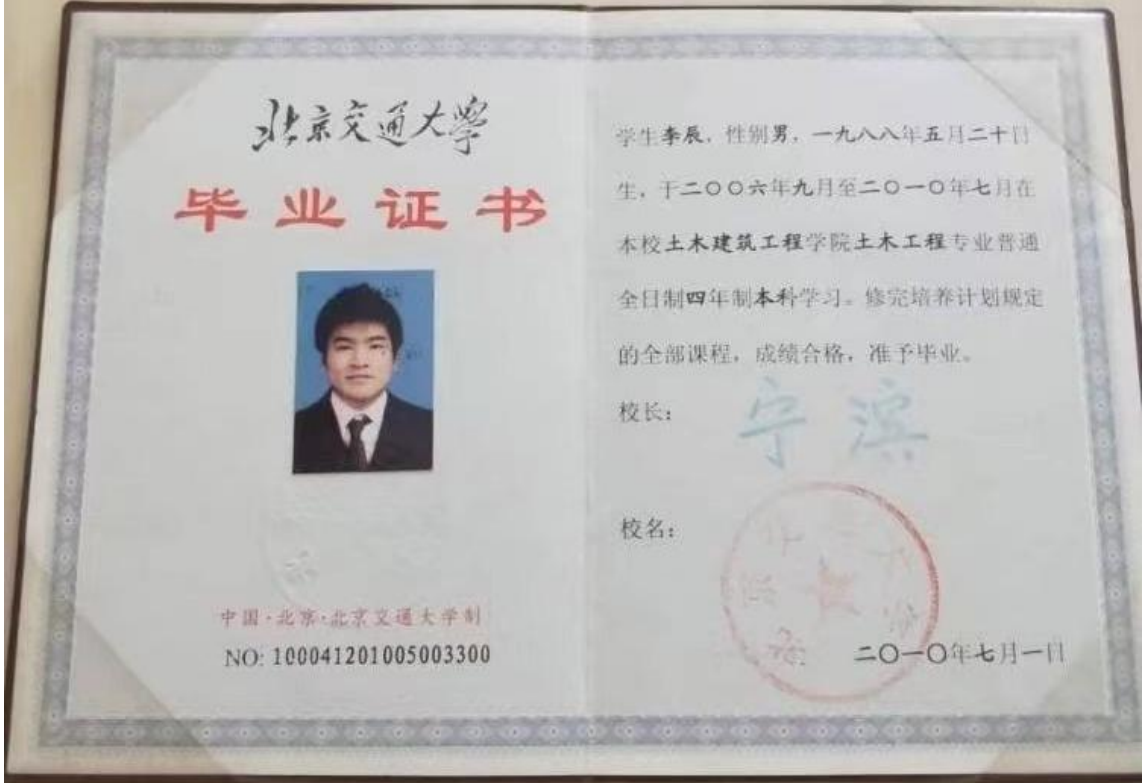 北京交通大學
毕业证书
中国·北京·北京交通大学制
NO: 100041201005003300
学生李辰，性别男，一九八八年五月二十日
生，于二〇〇六年九月至二〇一〇年七月在
本校土木建筑工程学院土木工程专业普通
全日制四年制本科学习。修完培养计划规定
的全部课程，成绩合格，准予毕业。
校长：
宁滨
校名：
二〇一〇年七月一日